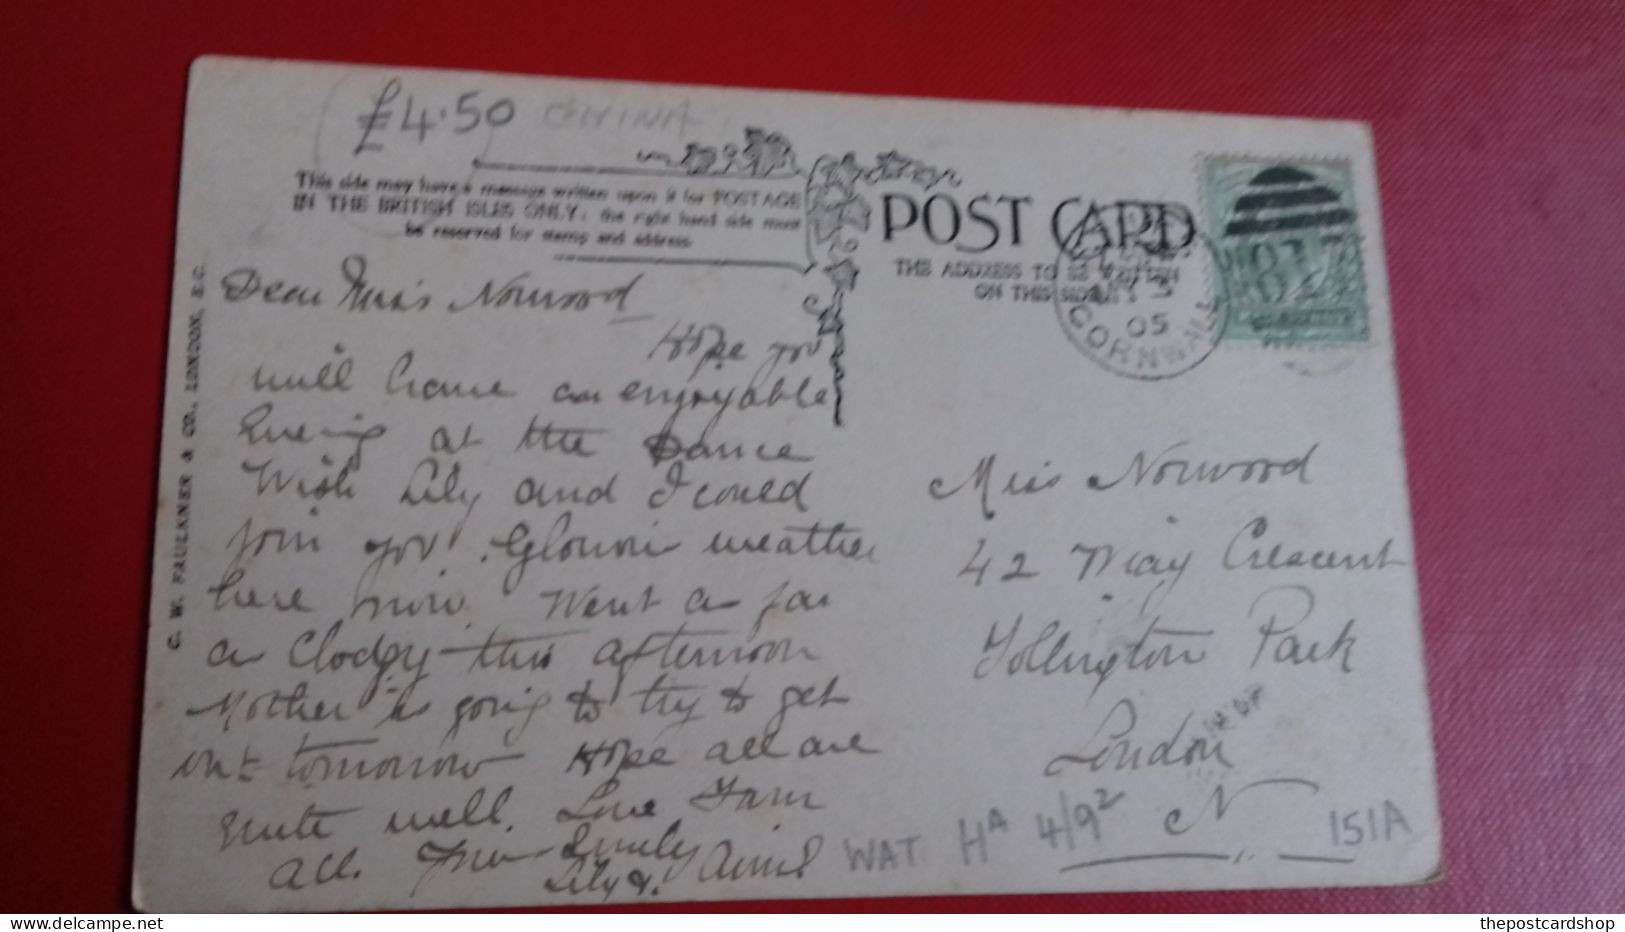 £4.50 CHINA
This side may have a message written upon it for POSTAGE
IN THE BRITISH ISLES ONLY: the right hand side must
be reserved for stamp and address.
POST CARD
THE ADDRESS TO BE WRITTEN
ON THIS SIDE
CORNWALL
05
C. W. FAULKNER & CO., LONDON, E.C.
Dear Miss Norwood
Hope you
will have an enjoyable
Evening at the Dance
Wish Lily and I could
join you. Glorious weather
here now. Went as far
as Clodgy this afternoon
Mother is going to try to get
out tomorrow Hope all are
quite well. Love from
all. From Emily
Lily &
Miss Norwood
42 Moray Crescent
Tollington Park
London
N
WAT HA 4/92
151A
thepostcardshop